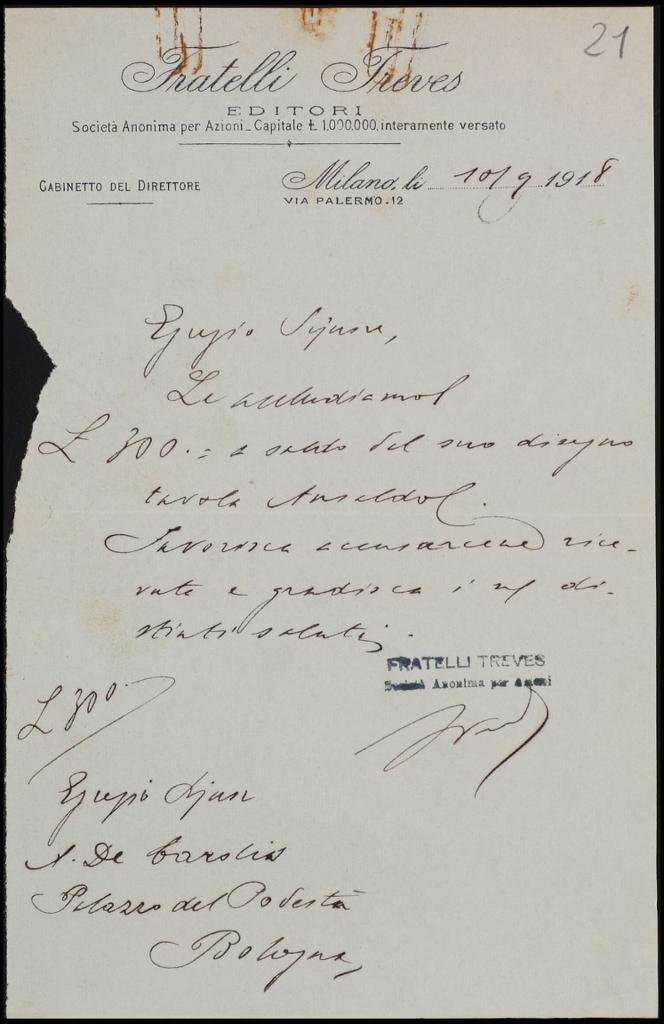 21
Fratelli Treves
EDITORI
Società Anonima per Azioni - Capitale £ 1.000.000, interamente versato
GABINETTO DEL DIRETTORE
Milano, li 10/9 1918
VIA PALERMO - 12
Egregio Signore,
Le accludiamo
£ 300.= a saldo del suo disegno
tavola Ansaldo.
Favorisca accusarcene rice-
vuta e gradisca i ns/ di-
stinti saluti.
FRATELLI TREVES
Società Anonima per Azioni
£ 300.
Egregio Signor
A. De Carolis
Palazzo del Podestà
Bologna